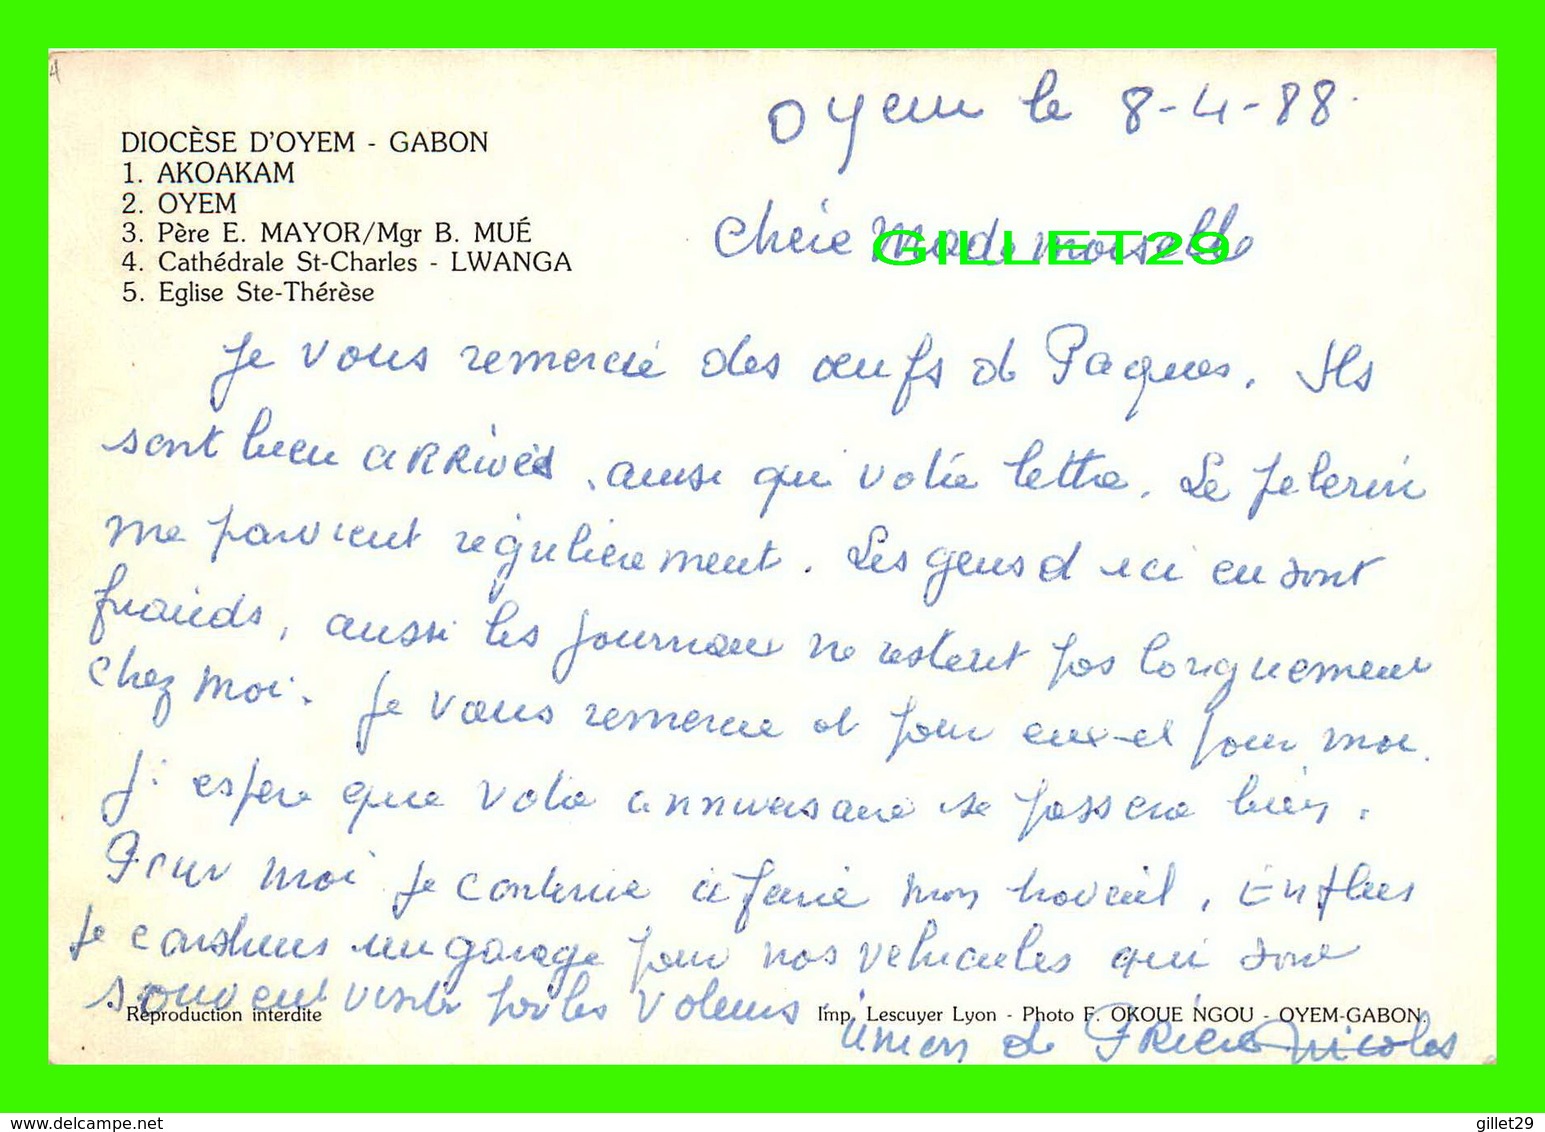 4
DIOCÈSE D'OYEM - GABON
1. AKOAKAM
2. OYEM
3. Père E. MAYOR/Mgr B. MUÉ
4. Cathédrale St-Charles - LWANGA
5. Eglise Ste-Thérèse
Oyem le 8-4-88.
Chère Mademoiselle
GILLET29
Je vous remercie des œufs de Paques. Ils
sont bien arrivés, ainsi que votre lettre. Le Pelerin
me parvient régulièrement. Les gens d ici en sont
friands, aussi les journaux ne restent pas longuement
chez moi. Je vous remercie et pour eux et pour moi.
J'espère que votre anniversaire se passera bien.
Pour moi je continue à faire mon travail. En plus
je construis un garage pour nos vehicules qui sont
souvent visités par les voleurs.
Union de Prière Nicolas
Reproduction interdite
Imp. Lescuyer Lyon - Photo F. OKOUE NGOU - OYEM-GABON.
delcampe.net
gillet29